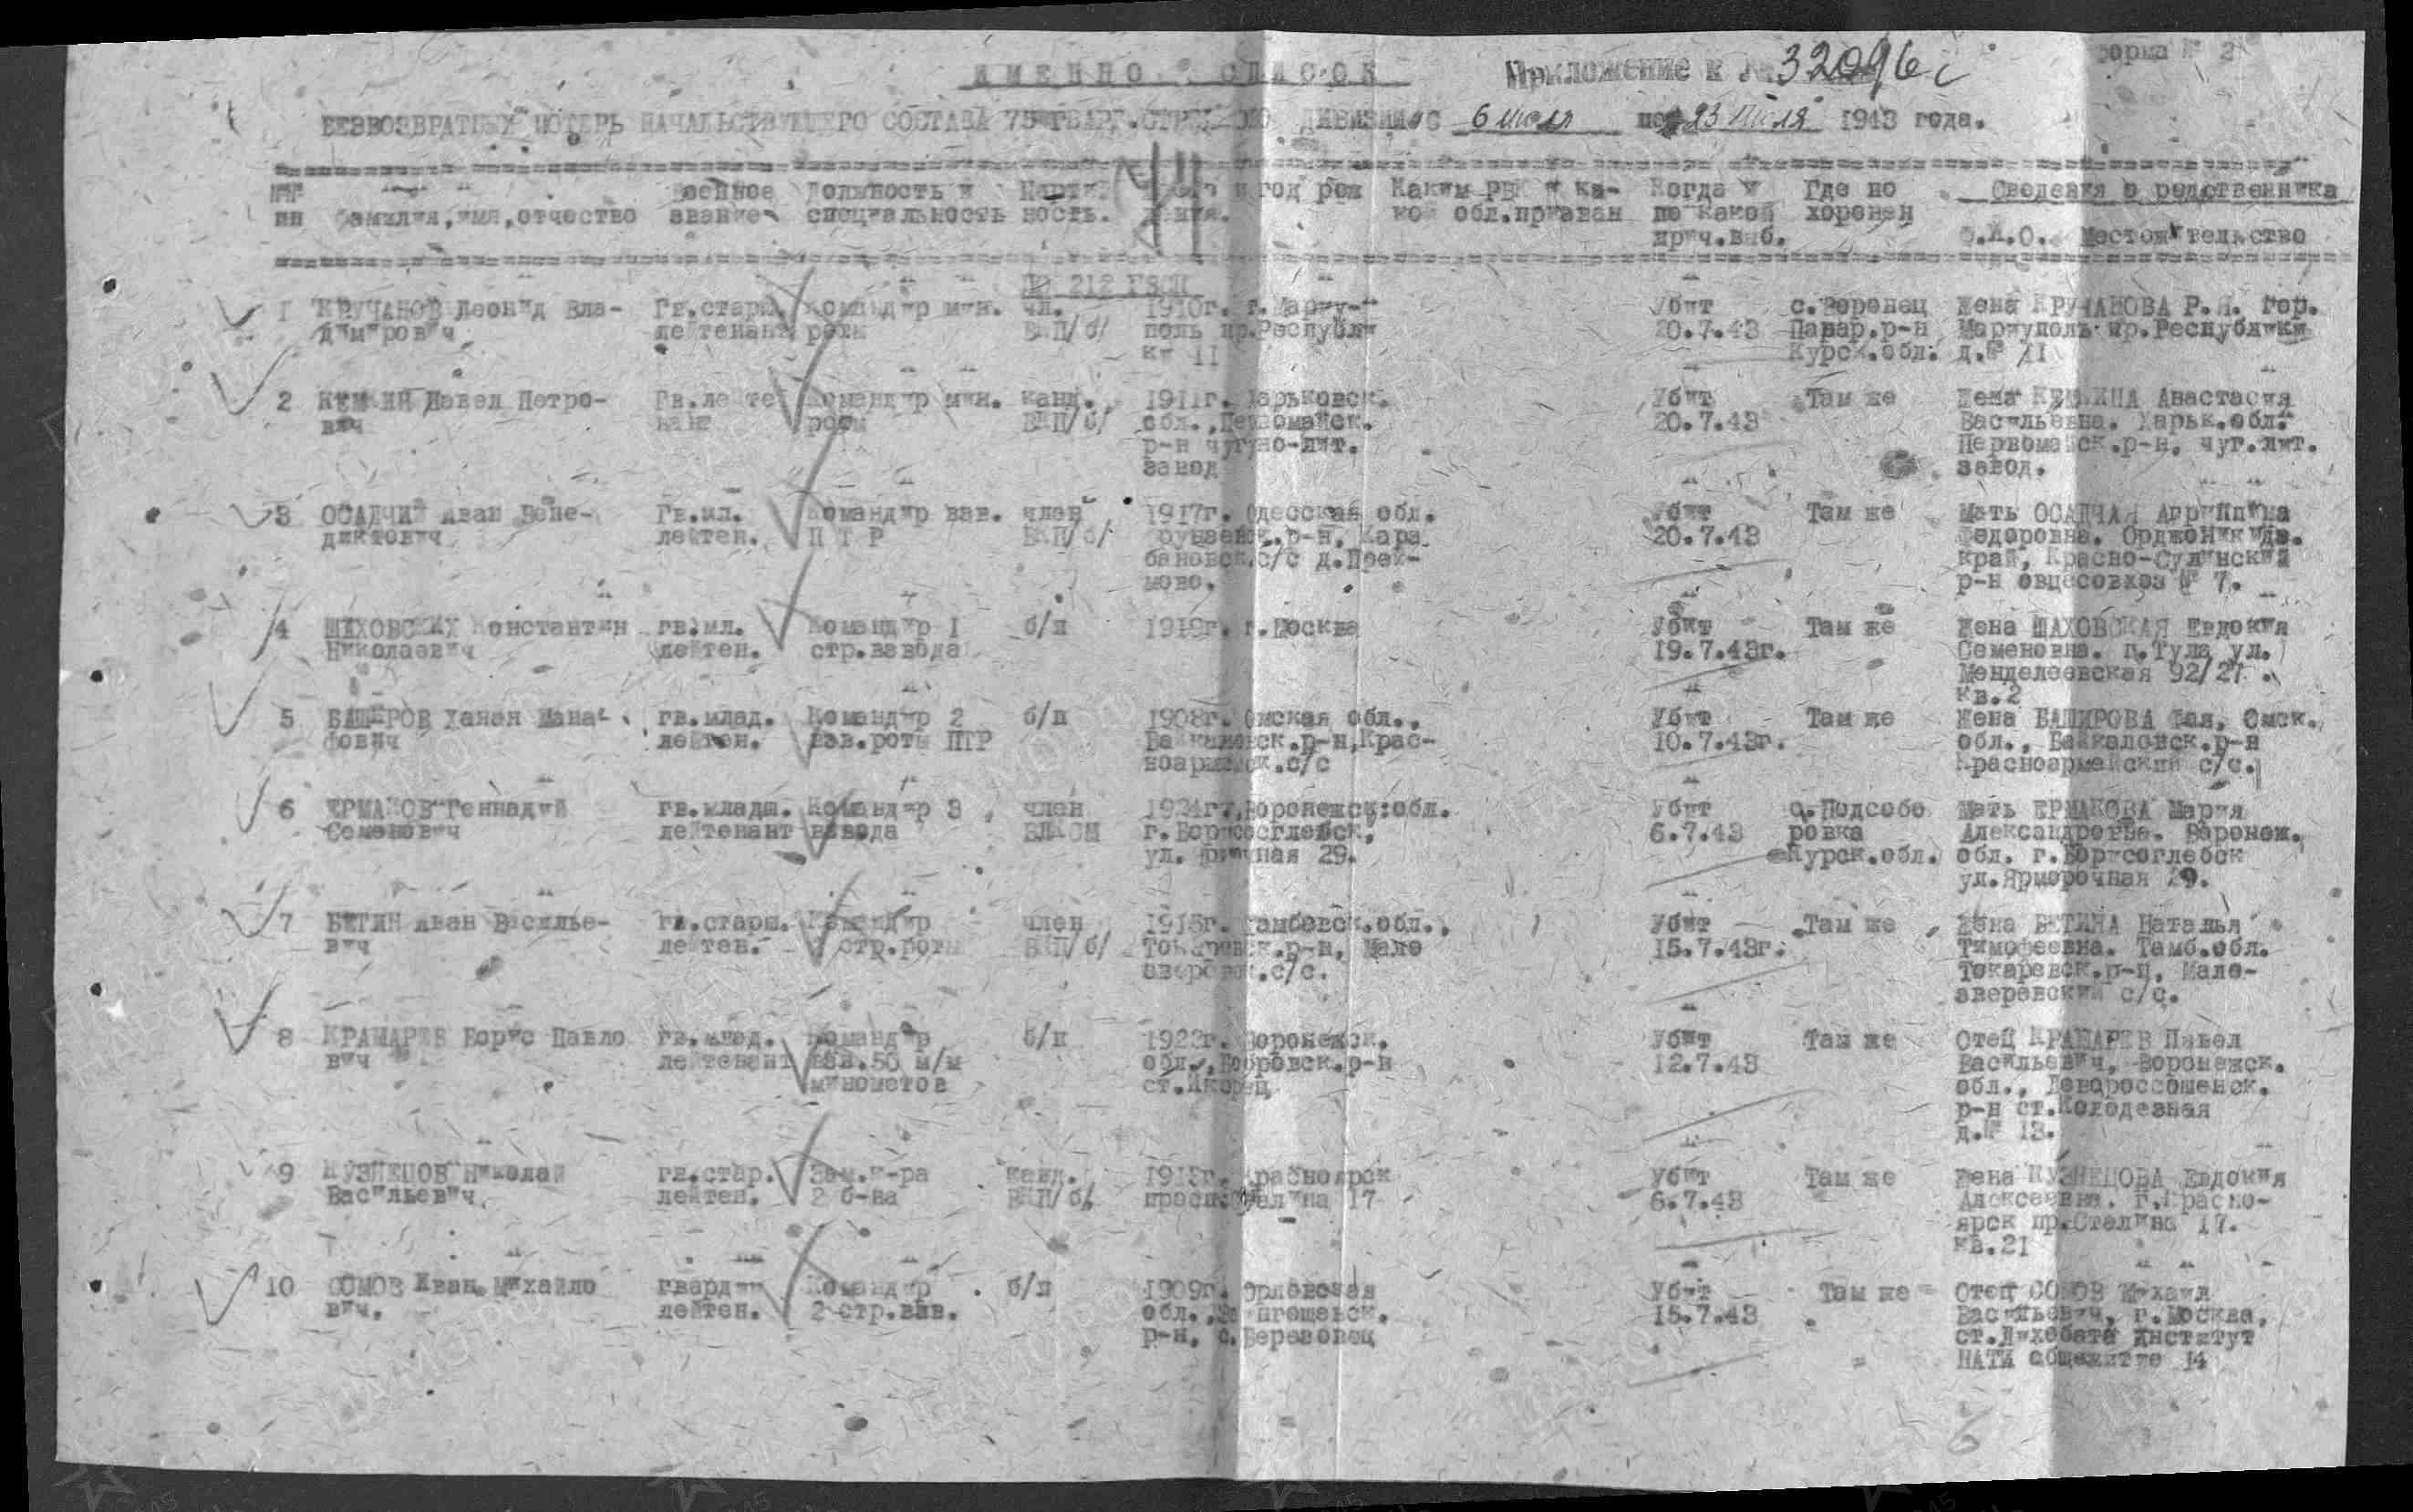 ИМЕННО СПИСОК
Приложение к № 32096с
форма № 2
БЕЗВОЗВРАТНЫХ ПОТЕРЬ НАЧАЛЬСТВУЮЩЕГО СОСТАВА 75 ГВАРД. ДИВИЗИИ с 6 июля по 23 июля 1943 года.
Военное Должность и Парти год рож Каким РВК и ка- Когда и Где по Сведения о родственника
пп фамилия, имя, отчество звание специальность ность. дения. кой обл.призван по какой хоронен
прич.выб. Ф.И.О. Местожительство
ПО 212 ГвСП
1 КРУЧАНОВ Леонид Вла- Гв.старш. Командир мин. чл. 1910г. г.Мариу- Убит с.Воронец Жена КРУЧАНОВА Р.Я. Гор.
димирович лейтенант роты ВКП/б/ поль пр.Республи 20.7.43 р-н Мариуполь пр.Республики
ки 11 Курск.обл. д.№ 11
2 Павел Петро- Гв.лейте Командир мин. канд. 1911г. Харьковск. Убит Там же Жена Анастасия
вич нант роты ВКП/б/ обл., Первомайск. 20.7.43 Васильевна. Харьк.обл.
р-н чугуно-лит. Первомайск.р-н, чуг.лит.
завод завод.
3 ОСАДЧИЙ Иван Вене- Гв.мл. Командир взв. член 1917г. Одесская обл. Убит Там же Мать ОСАДЧАЯ Агриппина
диктович лейтен. П Т Р ВКП/б/ р-н, 20.7.43 Федоровна. Орджоникидз.
с/с д. край, Красно-Сулинский
мово. р-н овцесовхоз № 7.
4 ШИХОВСКИХ Константин гв.мл. Командир 1 б/п 1919г. г.Москва Убит Там же Жена ШАХОВСКАЯ Евдокия
Николаевич лейтен. стр.взвода 19.7.43г. Семеновна. г.Тула ул.
Менделеевская 92/27
кв.2
5 БАШИРОВ Ханан гв.млад. Командир 2 б/п 1908г. Омская обл., Убит Там же Жена БАШИРОВА Омск.
фович лейтен. взв.роты ПТР Байкаловск.р-н, Крас- 10.7.43г. обл., Байкаловск.р-н
ноармейск.с/с Красноармейский с/с.
6 ЕРМАКОВ Геннадий гв.младш. Командир 3 член 1924г., Воронежск.обл. Убит с.Подсобо Мать ЕРМАКОВА Мария
Семенович лейтенант взвода ВЛКСМ г.Борисоглебск, 6.7.43 ровка Александровна. Воронеж.
ул. 29. Курск.обл. обл. г.Борисоглебск
ул.Ярморочная 29.
7 БЕТИН Иван Василье- гв.старш. Командир член 1915г. Тамбовск.обл., Убит Там же Жена БЕТИНА Наталья
вич лейтен. стр.роты ВКП/б/ Токаревск.р-н, Мало 15.7.43г. Тимофеевна. Тамб.обл.
зверевск.с/с. Токаревск.р-н, Мало-
зверевский с/с.
8 КРАМАРЕВ Борис Павло гв.млад. Командир б/п 1923г. Воронежск. Убит Там же Отец КРАМАРЕВ Павел
вич лейтенант взв.50 м/м обл., Бобровск.р-н 12.7.43 Васильевич, Воронежск.
минометов ст.Икорец обл., Левороссошенск.
р-н ст.Колодезная
д.№ 13.
9 КУЗНЕЦОВ Николай гв.стар. Зам.к-ра канд. 1913г. Красноярск Убит Там же Жена КУЗНЕЦОВА Евдокия
Васильевич лейтен. 2 б-на ВКП/б/ просп.Сталина 17 6.7.43 Алексеевна. г.Красно-
ярск пр.Сталина 17.
кв.21
10 СОМОВ Иван Михайло гвардии Командир б/п 1909г. Орловская Убит Там же Отец СОМОВ Михаил
вич. лейтен. 2 стр.взв. обл., 15.7.43 Васильевич, г.Москва,
р-н, с.Березовец ст.Лихобата Институт
НАТИ общежитие 14